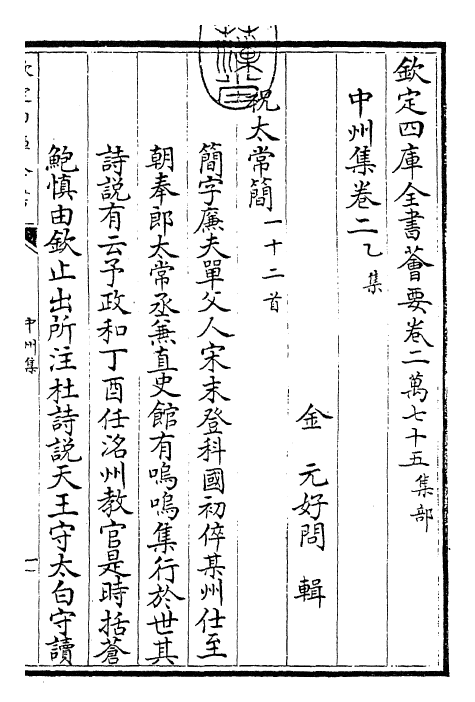 欽定四庫全書薈要卷二萬七十五 集部
中州集卷二 乙集
金 元好問 輯
祝太常簡 一十二首
簡字廉夫單父人宋末登科國初倅某州仕至
朝奉郎太常丞兼直史館有嗚嗚集行於世其
詩說有云予政和丁酉任洺州教官是時括蒼
鮑慎由欽止出所注杜詩說天王守太白守讀
中州集
一